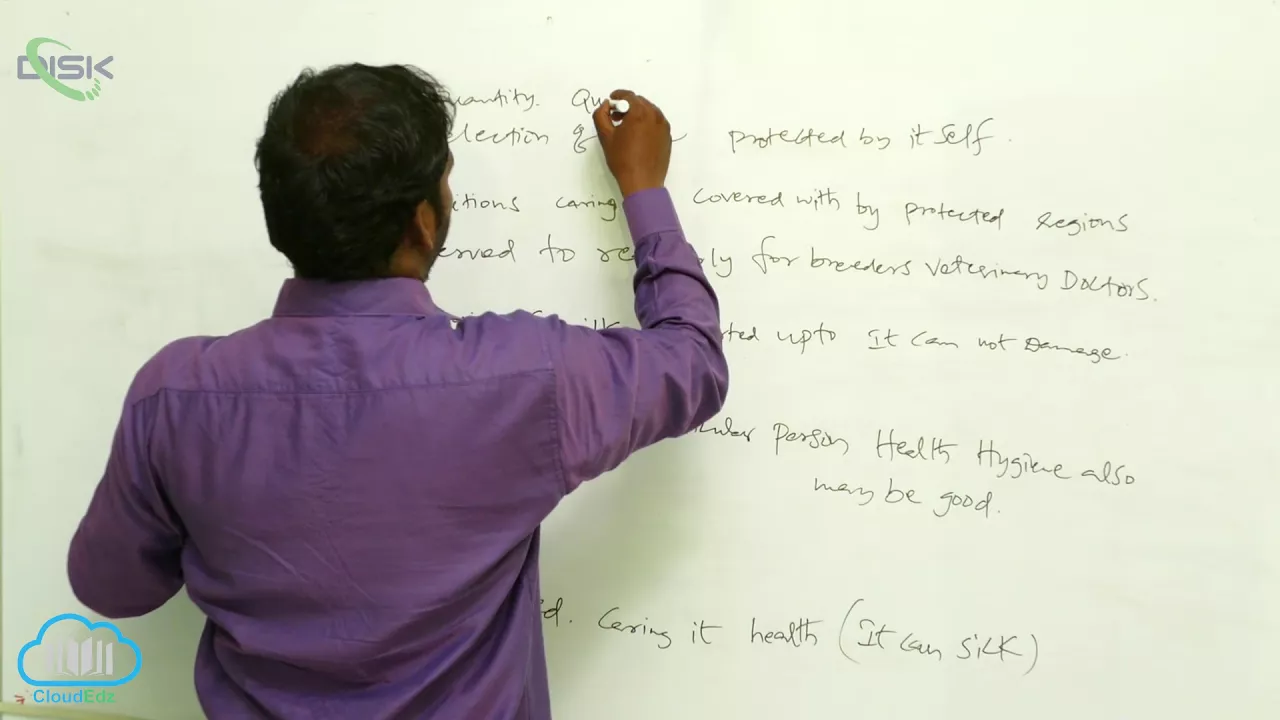 DISK
uantity. Qu
election of protected by itself.
itions caring covered with by protected Regions
erved to re ly for breeders Veterinary Doctors.
silk ted upto It can not Damage.
ular Person Health Hygiene also
may be good.
d. Caring it health (It can silk)
CloudEdz